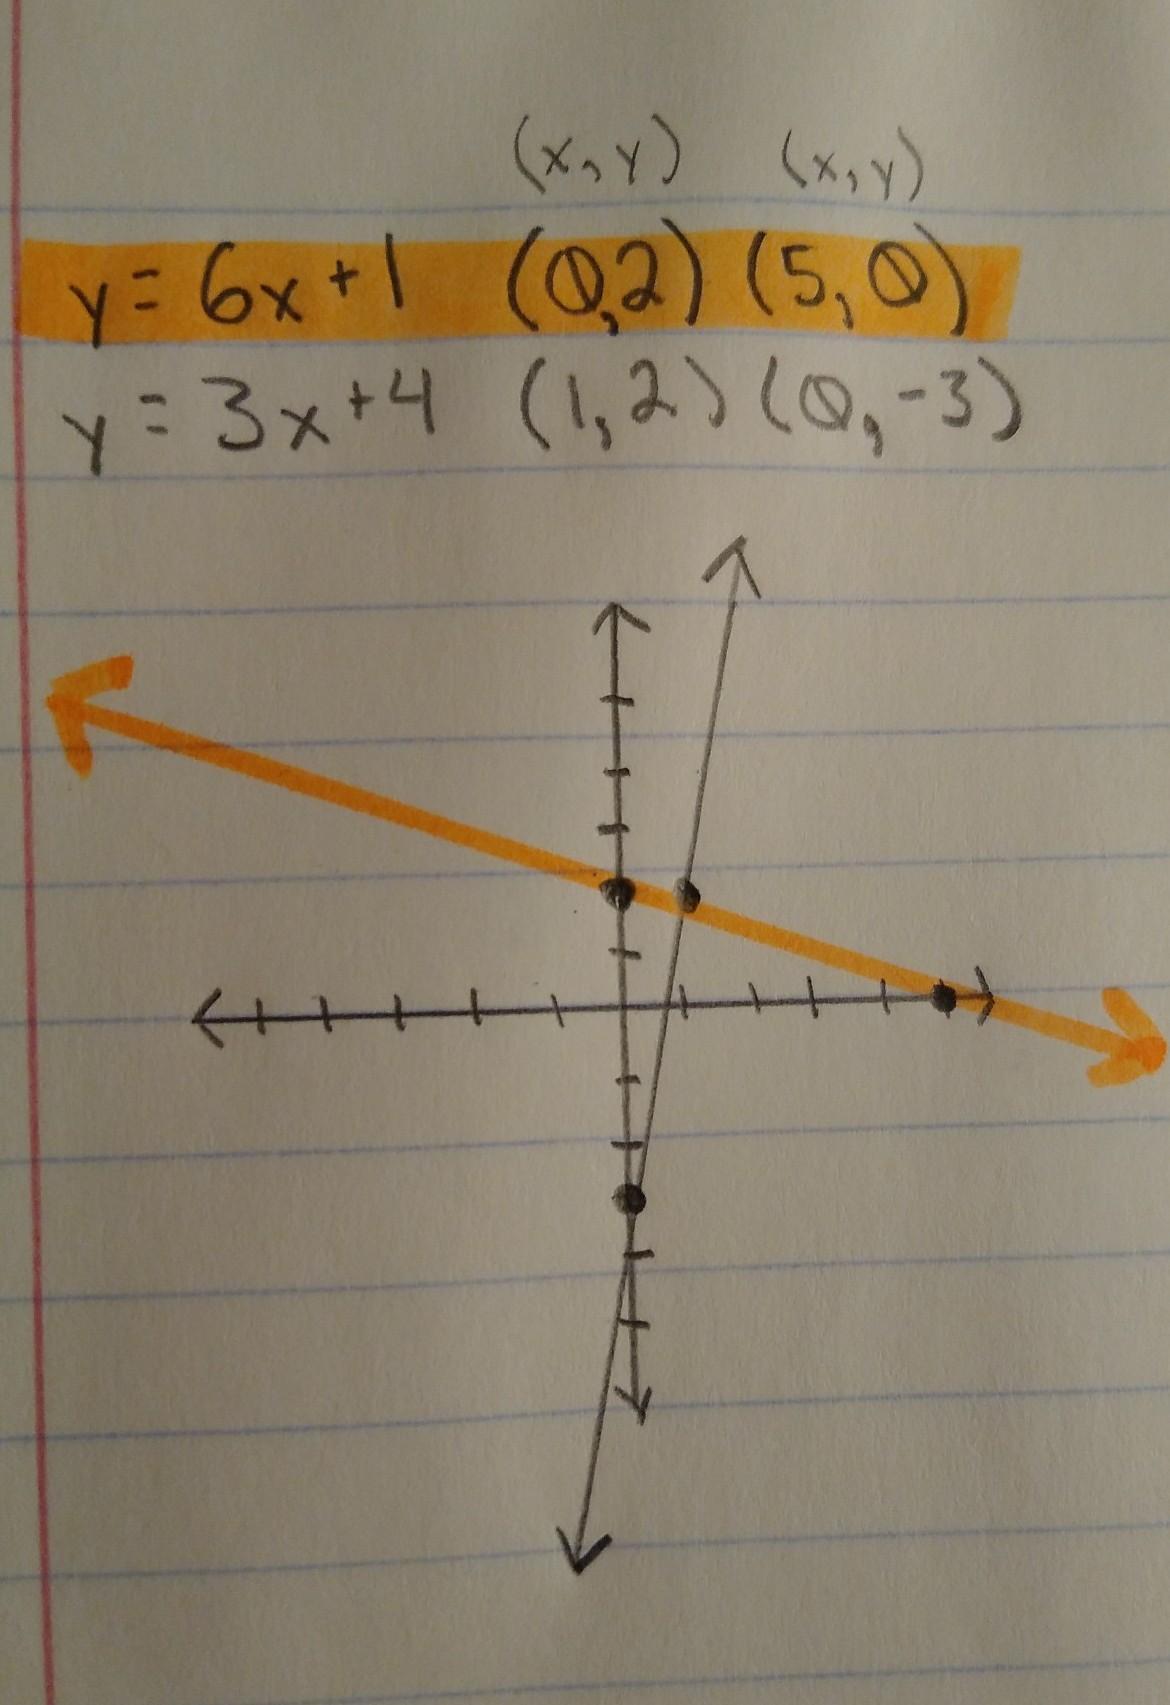 (x,y) (x,y)
y = 6x + 1 (0,2) (5,0)
y = 3x + 4 (1,2) (0,-3)